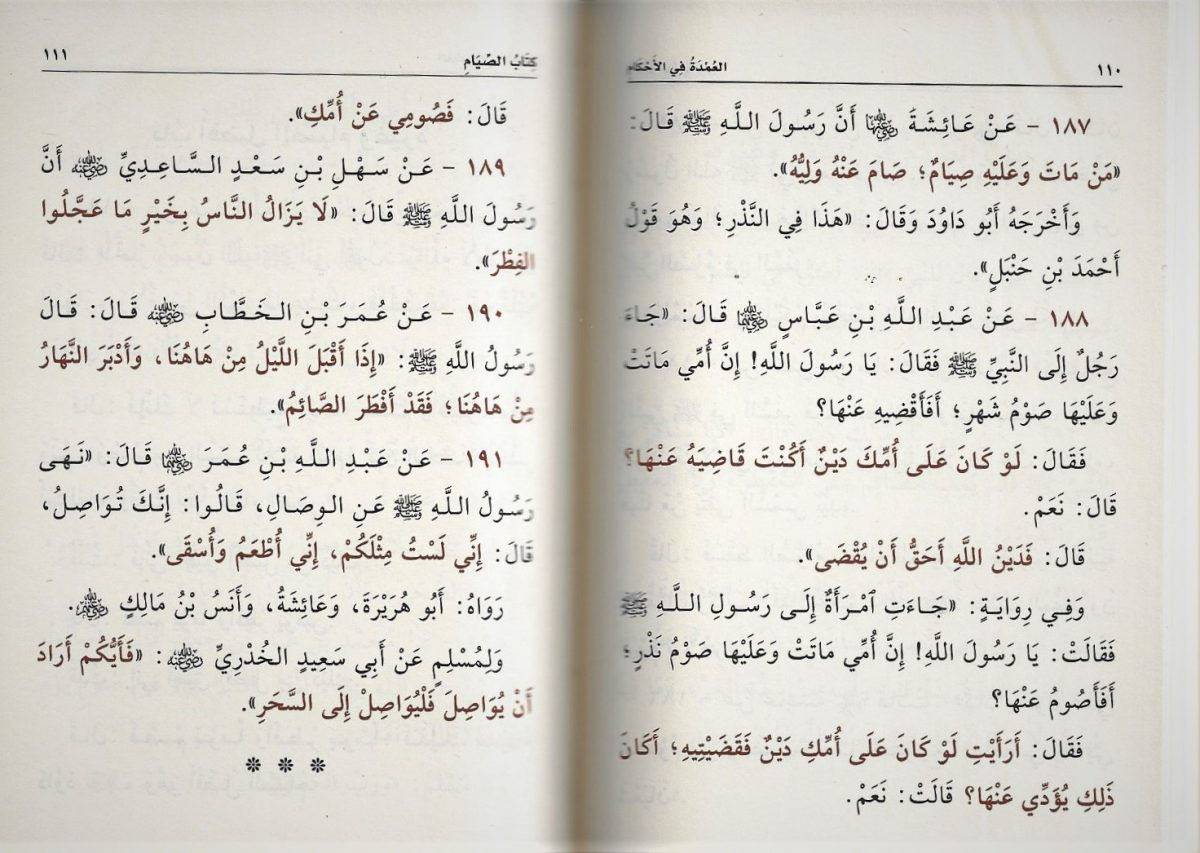 ١١٠
العُمْدَةُ فِي الأَحْكَامِ
١٨٧ - عَنْ عَائِشَةَ رضي الله عنها أَنَّ رَسُولَ اللَّهِ ﷺ قَالَ:
«مَنْ مَاتَ وَعَلَيْهِ صِيَامٌ؛ صَامَ عَنْهُ وَلِيُّهُ».
وَأَخْرَجَهُ أَبُو دَاوُدَ وَقَالَ: «هَذَا فِي النَّذْرِ؛ وَهُوَ قَوْلُ
أَحْمَدَ بْنِ حَنْبَلٍ».
١٨٨ - عَنْ عَبْدِ اللَّهِ بْنِ عَبَّاسٍ رضي الله عنهما قَالَ: «جَاءَ
رَجُلٌ إِلَى النَّبِيِّ ﷺ فَقَالَ: يَا رَسُولَ اللَّهِ! إِنَّ أُمِّي مَاتَتْ
وَعَلَيْهَا صَوْمُ شَهْرٍ؛ أَفَأَقْضِيهِ عَنْهَا؟
فَقَالَ: لَوْ كَانَ عَلَى أُمِّكَ دَيْنٌ أَكُنْتَ قَاضِيَهُ عَنْهَا؟
قَالَ: نَعَمْ.
قَالَ: فَدَيْنُ اللَّهِ أَحَقُّ أَنْ يُقْضَى».
وَفِي رِوَايَةٍ: «جَاءَتِ ٱمْرَأَةٌ إِلَى رَسُولِ اللَّهِ ﷺ
فَقَالَتْ: يَا رَسُولَ اللَّهِ! إِنَّ أُمِّي مَاتَتْ وَعَلَيْهَا صَوْمُ نَذْرٍ؛
أَفَأَصُومُ عَنْهَا؟
فَقَالَ: أَرَأَيْتِ لَوْ كَانَ عَلَى أُمِّكِ دَيْنٌ فَقَضَيْتِيهِ؛ أَكَانَ
ذَلِكِ يُؤَدِّي عَنْهَا؟ قَالَتْ: نَعَمْ.
كِتَابُ الصِّيَامِ
١١١
قَالَ: فَصُومِي عَنْ أُمِّكِ».
١٨٩ - عَنْ سَهْلِ بْنِ سَعْدٍ السَّاعِدِيِّ رضي الله عنه أَنَّ
رَسُولَ اللَّهِ ﷺ قَالَ: «لَا يَزَالُ النَّاسُ بِخَيْرٍ مَا عَجَّلُوا
الفِطْرَ».
١٩٠ - عَنْ عُمَرَ بْنِ الخَطَّابِ رضي الله عنه قَالَ: قَالَ
رَسُولُ اللَّهِ ﷺ: «إِذَا أَقْبَلَ اللَّيْلُ مِنْ هَاهُنَا، وَأَدْبَرَ النَّهَارُ
مِنْ هَاهُنَا؛ فَقَدْ أَفْطَرَ الصَّائِمُ».
١٩١ - عَنْ عَبْدِ اللَّهِ بْنِ عُمَرَ رضي الله عنهما قَالَ: «نَهَى
رَسُولُ اللَّهِ ﷺ عَنِ الوِصَالِ، قَالُوا: إِنَّكَ تُوَاصِلُ،
قَالَ: إِنِّي لَسْتُ مِثْلَكُمْ، إِنِّي أُطْعَمُ وَأُسْقَى».
رَوَاهُ: أَبُو هُرَيْرَةَ، وَعَائِشَةُ، وَأَنَسُ بْنُ مَالِكٍ رضي الله عنهم.
وَلِمُسْلِمٍ عَنْ أَبِي سَعِيدٍ الخُدْرِيِّ رضي الله عنه: «فَأَيُّكُمْ أَرَادَ
أَنْ يُوَاصِلَ فَلْيُوَاصِلْ إِلَى السَّحَرِ».
* * *